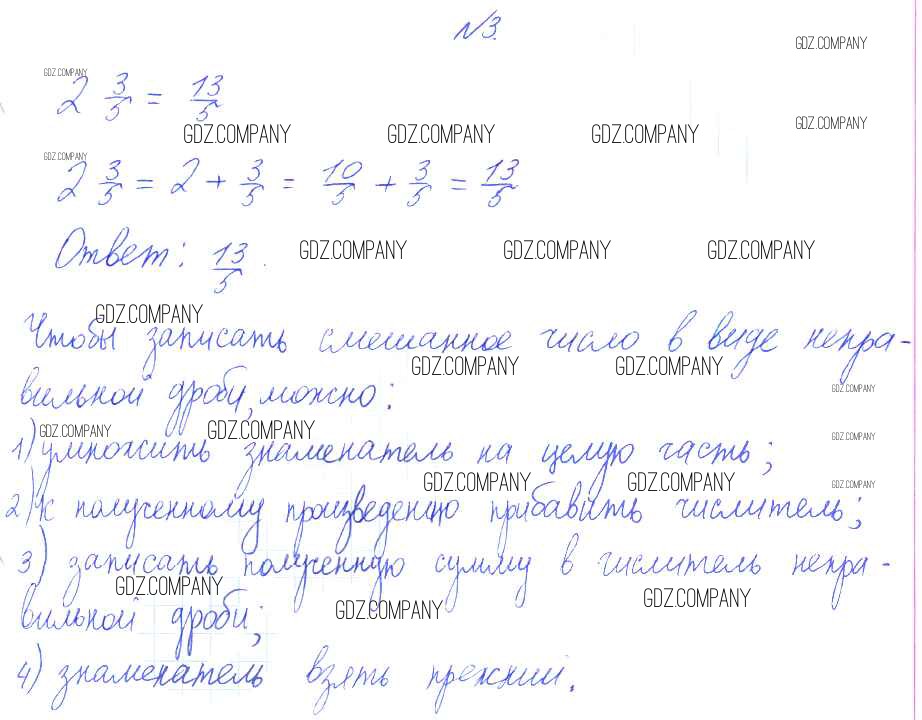 №3.
GDZ.COMPANY
GDZ.COMPANY
2 3/5 = 13/5
GDZ.COMPANY GDZ.COMPANY GDZ.COMPANY GDZ.COMPANY
GDZ.COMPANY
2 3/5 = 2 + 3/5 = 10/5 + 3/5 = 13/5
Ответ: 13/5.
GDZ.COMPANY GDZ.COMPANY GDZ.COMPANY
GDZ.COMPANY
Чтобы записать смешанное число в виде непра-
GDZ.COMPANY GDZ.COMPANY
GDZ.COMPANY
вильной дроби, можно:
GDZ.COMPANY GDZ.COMPANY GDZ.COMPANY
1) умножить знаменатель на целую часть;
GDZ.COMPANY GDZ.COMPANY GDZ.COMPANY
2) к полученному произведению прибавить числитель;
3) записать полученную сумму в числитель непра-
GDZ.COMPANY GDZ.COMPANY GDZ.COMPANY
вильной дроби;
4) знаменатель взять прежний.